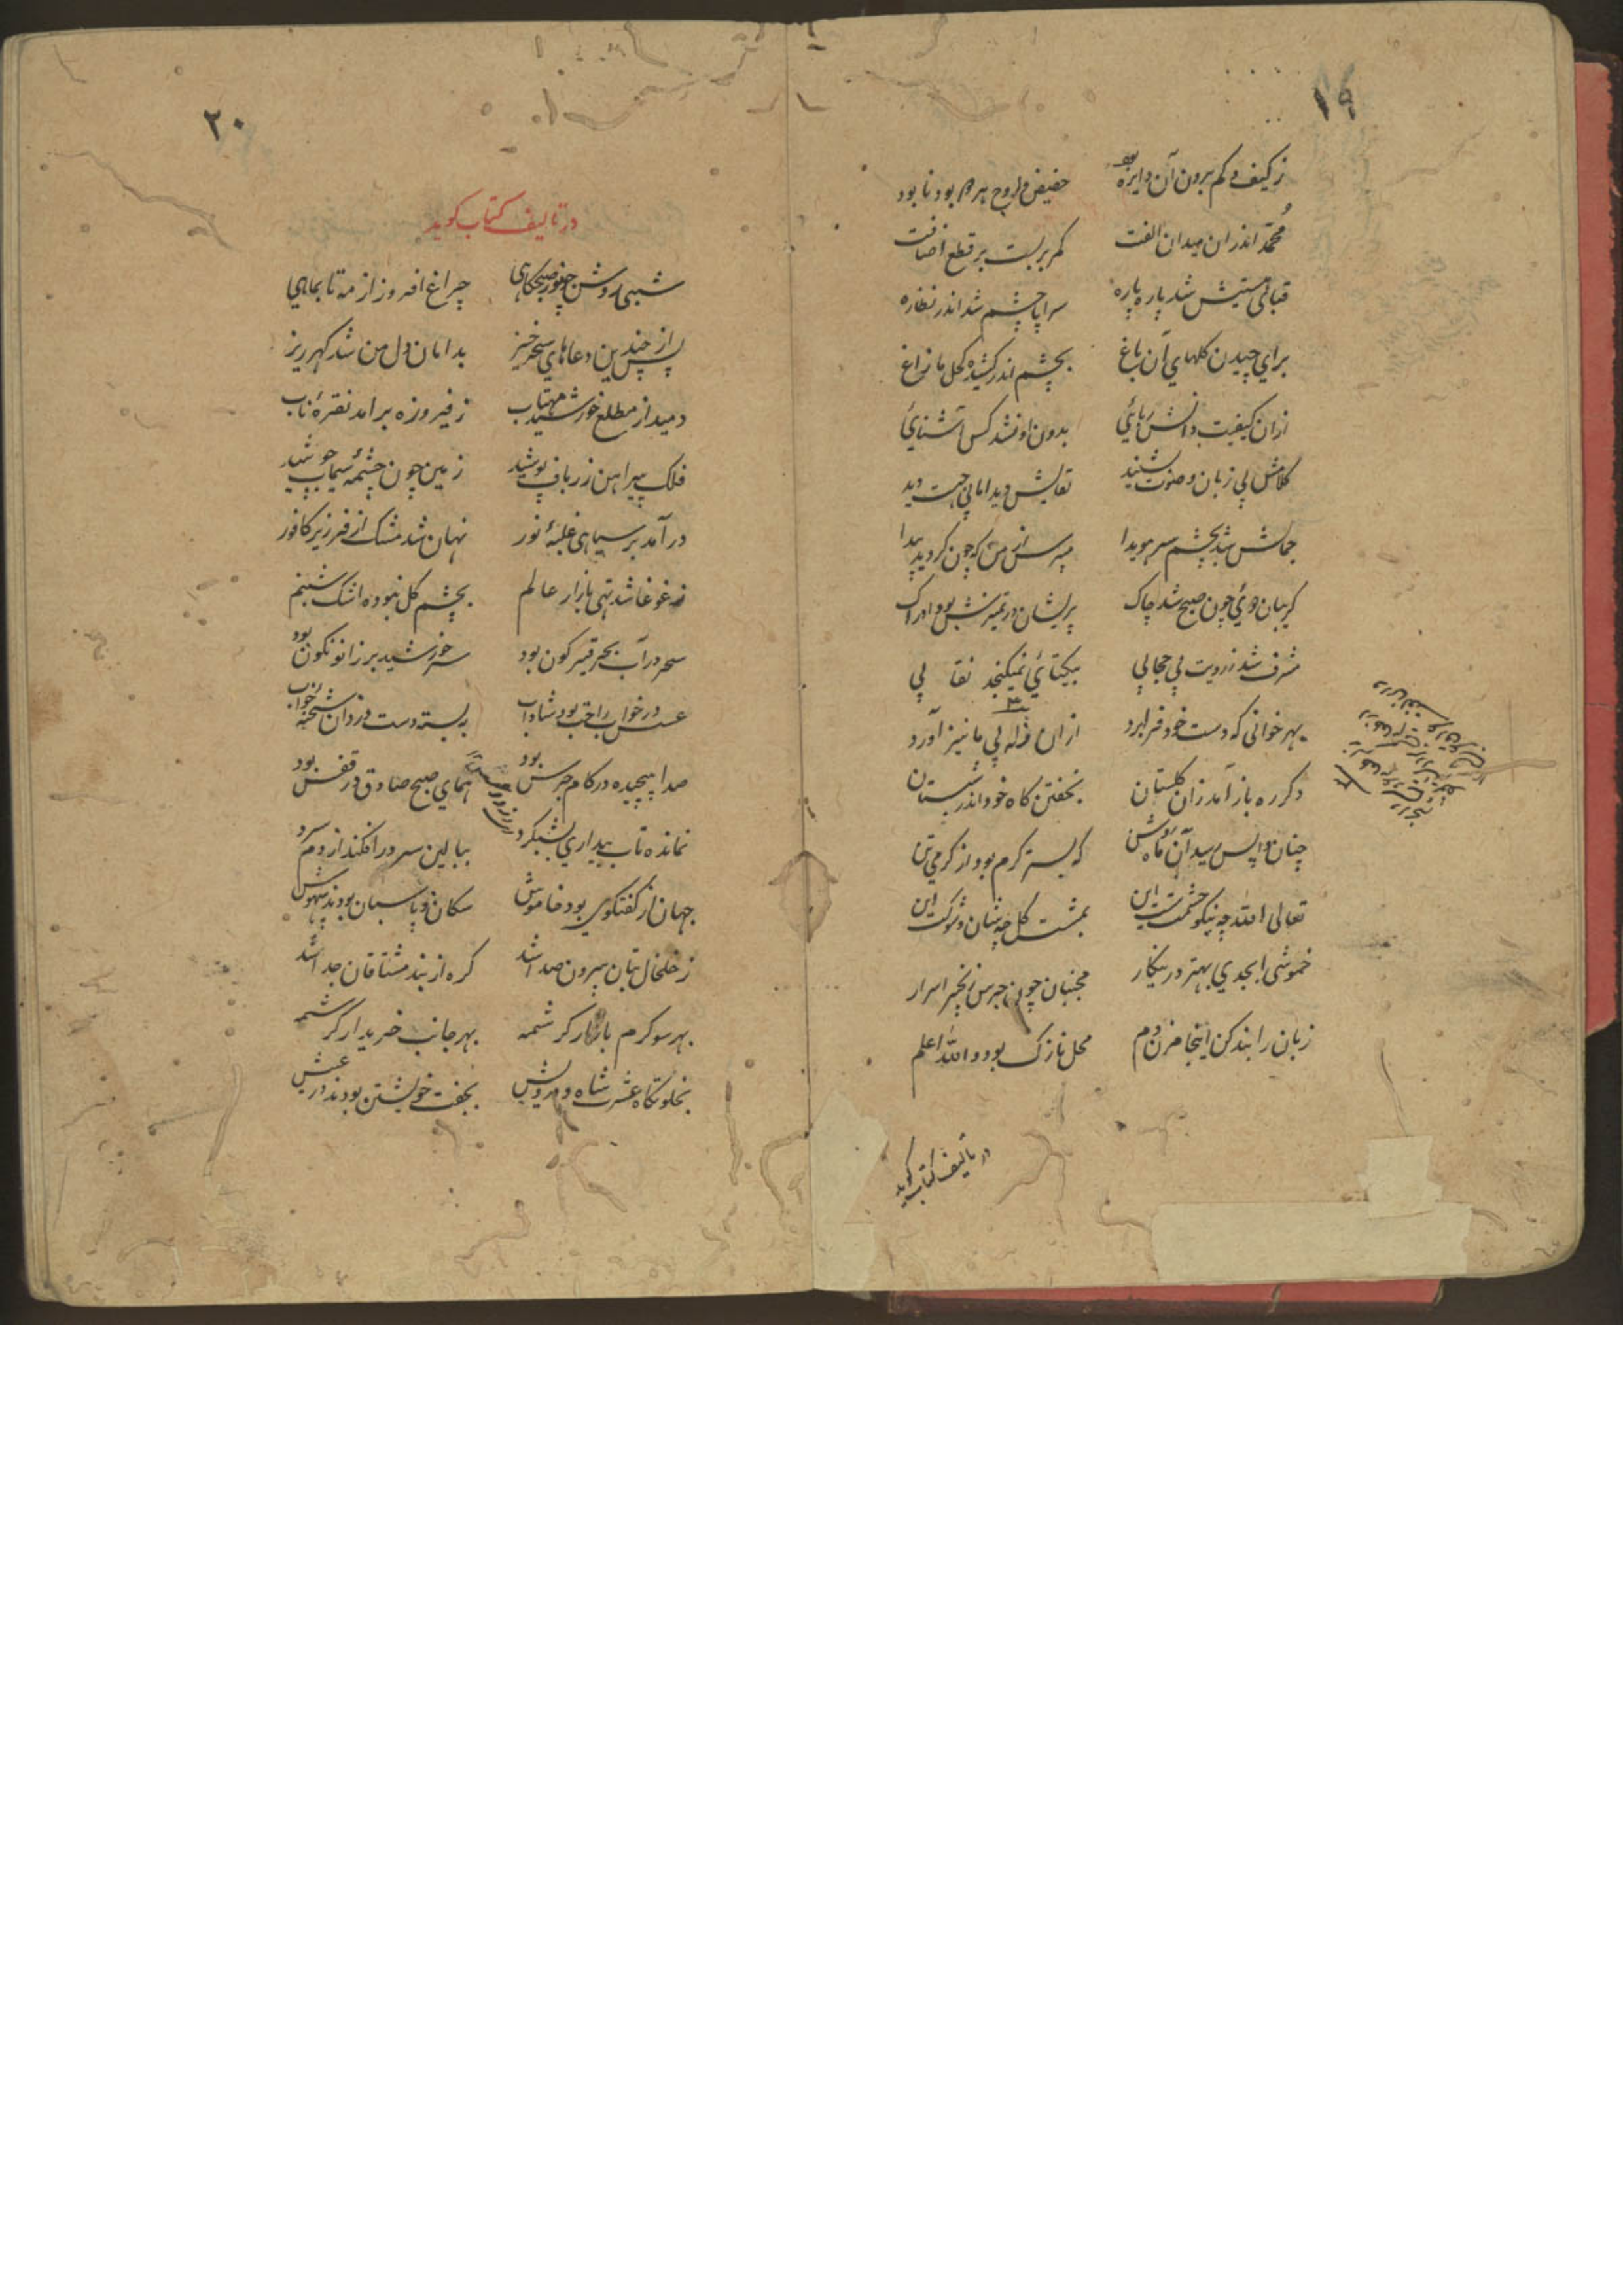 ١٩
ز کیف و کم برون آن دایره بود حضیض و اوج هر دو بود نابود
محمّد اندران میدان الفت کمر بربست بر قطع اضافت
قبای هستیش شد پاره پاره سراپا چشم شد اندر نظاره
برای چیدن کلهای آن باغ بچشم اندر کشیده کحل مازاغ
ازان کیفیت دانش ربائی بدون او نشد کس آشنائی
کلامش بی زبان و صوت بشنید لقایش دید اما بی جهت دید
جمالش شد بچشم سر هویدا مپرس از من که چون کردید پیدا
کریبان دوئی چون صبح شد چاک پریشان در تمیزش بود ادراک
مشرف شد ز رویت بی حجابی بیکتائی نمیکنجد نقابی
بهر خوانی که دست خود فرا برد ازان زله پی ما نیز آورد
دکر ره باز آمد زان کلستان بخفتن کاه خود اندر شبستان
چنان واپس رسید آن ماه روشن که بستر کرم بود از کرمی تن
تعالی الله چه نیکو حشمتست این بمشت کل چه شان و شوکت این
خموشی ابجدی بهتر درینکار مجنبان چون جرس زنجیر اسرار
زبان را بند کن اینجا مزن دم محل نازک بود و الله اعلم
در تألیف کتاب کوید
٢٠
در تالیف کتاب کوید
شبی روشن چو نور صبحکاهی چراغ افروز از مه تا بماهی
پس از چندین دعاهای سحر خیز بدامان دل من شد کهر ریز
دمید از مطلع خورشید مهتاب ز فیروزه برامد نقرهٔ ناب
فلک پیراهن زرباف پوشید زمین چون چشمهٔ سیماب جوشید
درآمد بر سیاهی غلبهٔ نور نهان شد مشک از فر زیر کافور
ز غوغا شد تهی بازار عالم بچشم کل نبوده اشک شبنم
سحر در آب بحر قیر کون بود سر خورشید بر زانو نکون بود
عسس در خواب راحت بود شاداب ببسته دست دزدان شحنهٔ خواب
صدا پیچیده در کام جرس بود همای صبح صادق در قفس بود
نمانده تاب بیداری بشبکرد ببالین سر در افکند از دم سرد
جهان از کفتکوی بود خاموش سکان و پاسبان بودند بیهوش
ز خلخال بتان بیرون صدا شد کره از بند مشتاقان جدا شد
بهر سو کرم بازار کرشمه بهر جانب خریدار کرشمه
بخلوتکاه عشرت شاه و درویش بجفت خویشتن بودند در عیش